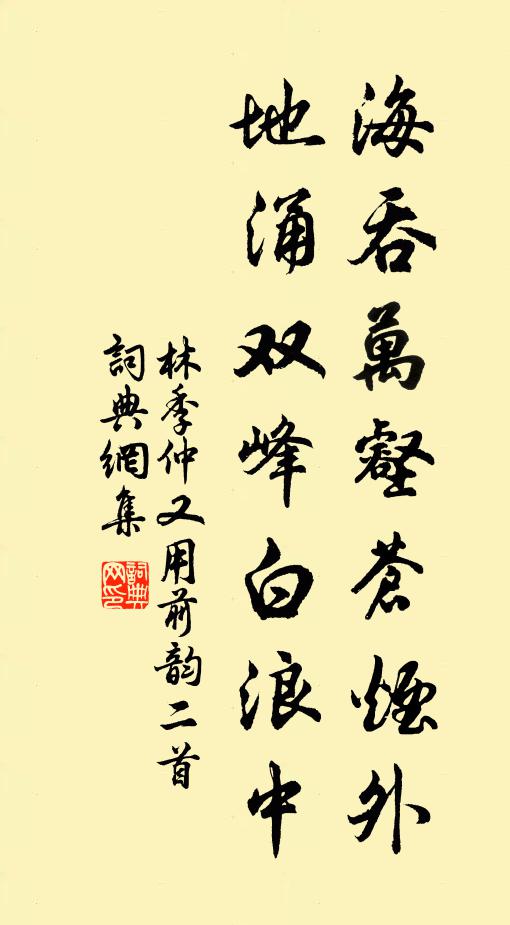 海吞萬壑蒼煙外
地涌双峰白浪中
林季仲又用前韵二首
詞典網集
詞典网印